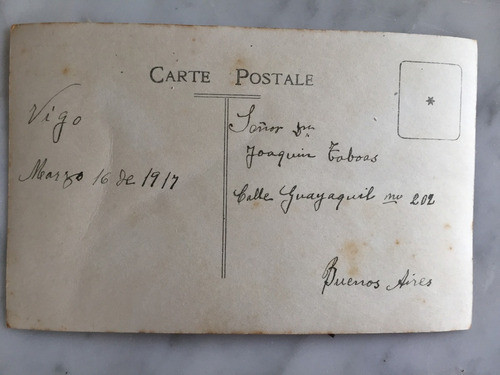 CARTE POSTALE
Vigo
Marzo 16 de 1917
Señor Dn
Joaquin Taboas
Calle Guayaquil no 202
Buenos Aires